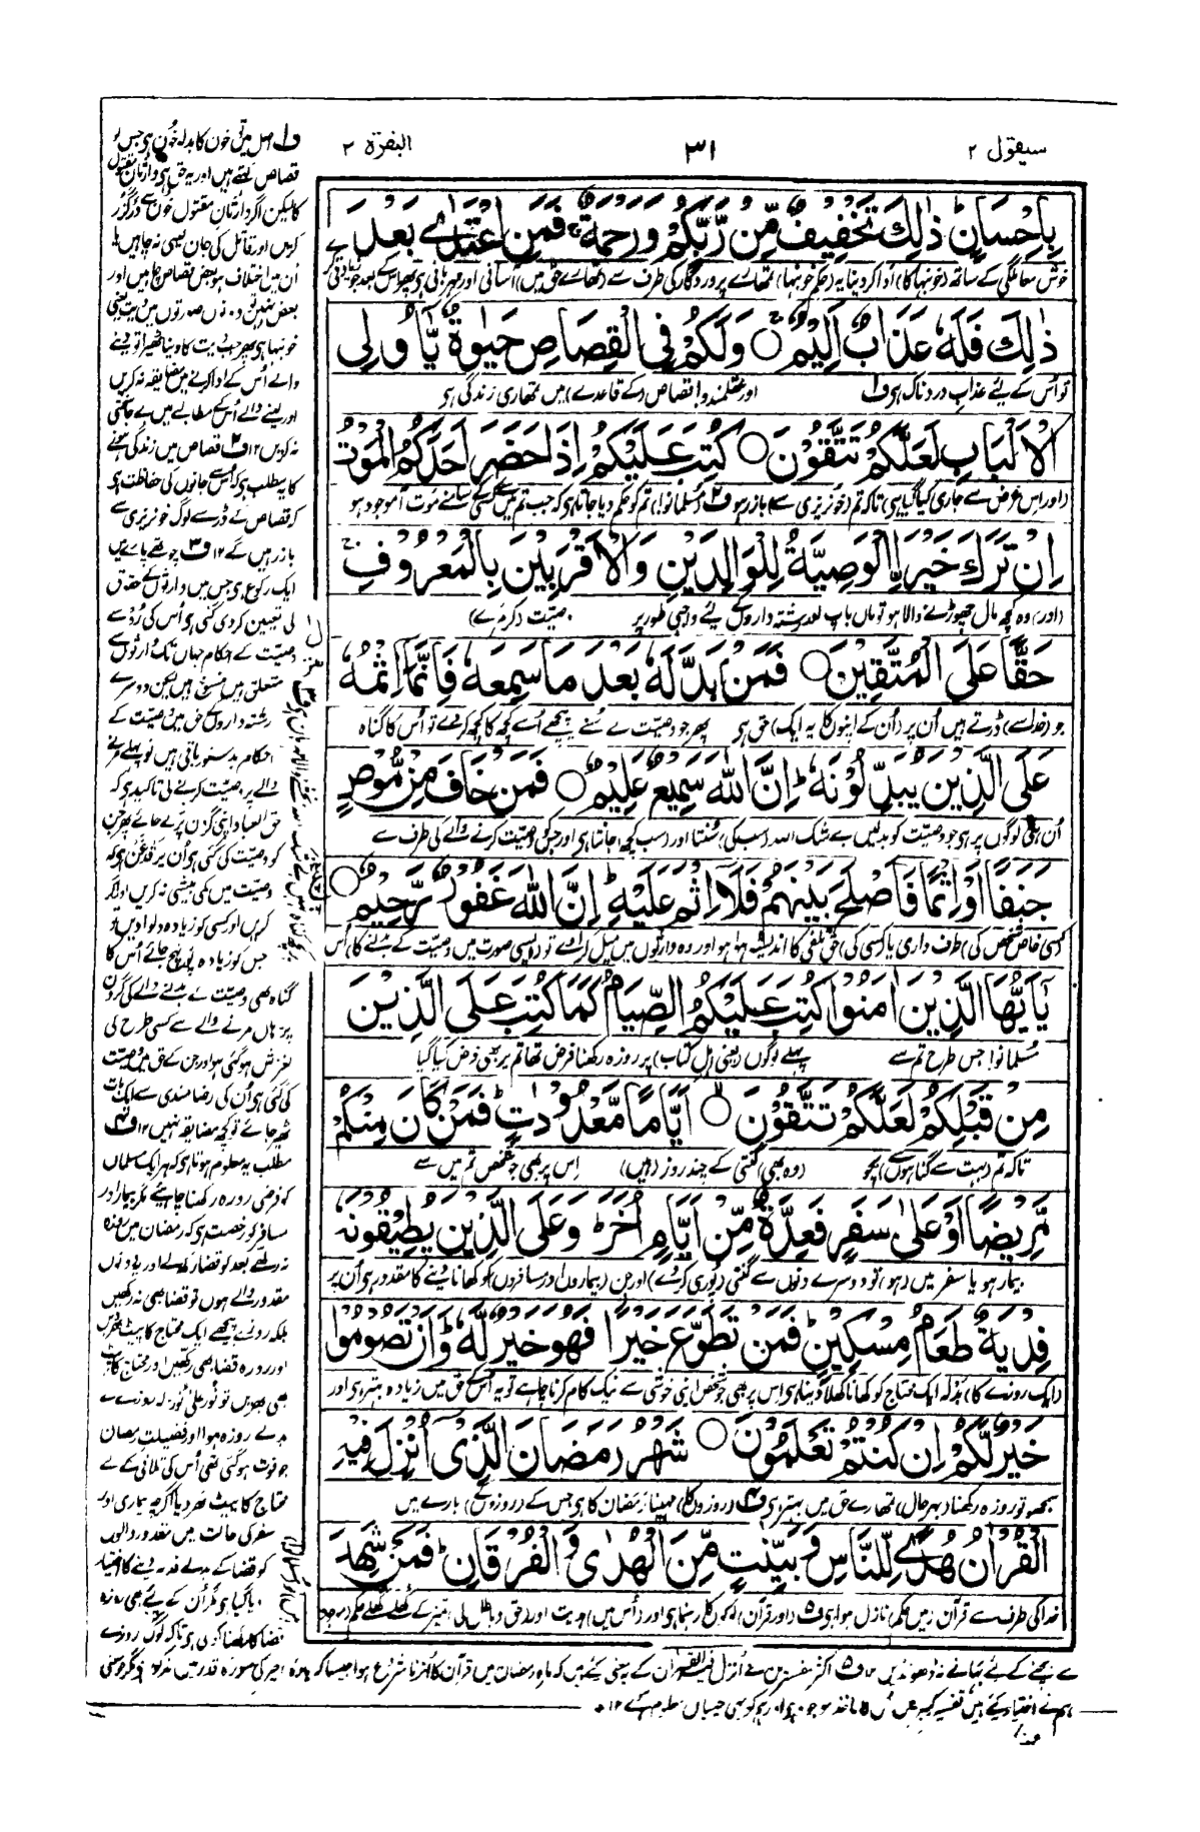 سیقول ۲
۳۱
البقرة ۲
بِاِحْسَانٍ ؕ ذٰلِكَ تَخْفِيْفٌ مِّنْ رَّبِّكُمْ وَرَحْمَةٌ ؕ فَمَنِ اعْتَدٰى بَعْدَ
خوش معاملگی کے ساتھ (خونبہا کا) ادا کر دینا یہ (حکم خونبہا) تمھارے پروردگار کی طرف سے (تمھارے حق میں) آسانی اور مہربانی ہی پھر اس کے بعد جو زیادتی کرے
ذٰلِكَ فَلَهٗ عَذَابٌ اَلِيْمٌ ۝ وَلَكُمْ فِى الْقِصَاصِ حَيٰوةٌ يّٰۤاُولِى
تو اُس کے لیے عذاب دردناک ہی ف۱ اور عقلمندو! قصاص (کے قاعدے) میں تمھاری زندگی ہی
الْاَلْبَابِ لَعَلَّكُمْ تَتَّقُوْنَ ۝ كُتِبَ عَلَيْكُمْ اِذَا حَضَرَ اَحَدَكُمُ الْمَوْتُ
(اور اس غرض سے جاری کیا گیا ہی) تاکہ تم (خونریزی سے) باز رہو ف۲ (مسلمانو!) تم کو حکم دیا جاتا ہی کہ جب تم میں سے کسی کے سامنے موت آموجود ہو
اِنْ تَرَكَ خَيْرَا ۖۚ اۨلْوَصِيَّةُ لِلْوَالِدَيْنِ وَالْاَقْرَبِيْنَ بِالْمَعْرُوْفِ ۚ
(اور) وہ کچھ مال چھوڑنے والا ہو تو ماں باپ اور رشتہ داروں کے لیے واجبی طور پر وصیت (کر مرے)
حَقًّا عَلَى الْمُتَّقِيْنَ ۝ فَمَنْۢ بَدَّلَهٗ بَعْدَ مَا سَمِعَهٗ فَاِنَّمَاۤ اِثْمُهٗ
جو (خدا سے) ڈرتے ہیں اُن پر (اُن کے اپنوں کا یہ ایک) حق ہی پھر جو وصیت کے سُنے پیچھے اُسے کچھ کا کچھ کر دے تو اُس کا گناہ
عَلَى الَّذِيْنَ يُبَدِّلُوْنَهٗ ؕ اِنَّ اللّٰهَ سَمِيْعٌ عَلِيْمٌ ۝ فَمَنْ خَافَ مِنْ مُّوْصٍ
اُن ہی لوگوں پر ہی جو وصیت کو بدلیں بے شک اللہ (سب کی) سُنتا اور (سب کچھ) جانتا ہی اور جس کو وصیت کرنے والے کی طرف سے
جَنَفًا اَوْ اِثْمًا فَاَصْلَحَ بَيْنَهُمْ فَلَاۤ اِثْمَ عَلَيْهِ ؕ اِنَّ اللّٰهَ غَفُوْرٌ رَّحِيْمٌ ۝
کسی خاص شخص کی) طرف داری یا کسی کی) حق تلفی کا اندیشہ ہوا ہو اور وہ وارثوں میں میل کرا دے تو (ایسی صورت میں وصیت کے بدلنے کا) اُس
يٰۤاَيُّهَا الَّذِيْنَ اٰمَنُوْا كُتِبَ عَلَيْكُمُ الصِّيَامُ كَمَا كُتِبَ عَلَى الَّذِيْنَ
مسلمانو! جس طرح تم سے پہلے لوگوں (یعنی اہل کتاب) پر روزہ رکھنا فرض تھا تم پر بھی فرض کیا گیا
مِنْ قَبْلِكُمْ لَعَلَّكُمْ تَتَّقُوْنَ ۝ اَيَّامًا مَّعْدُوْدٰتٍ ؕ فَمَنْ كَانَ مِنْكُمْ
تاکہ تم (بہت سے گناہوں سے) بچو (وہ بھی) گنتی کے چند روز (ہیں) اِس پر بھی جو شخص تم میں سے
مَّرِيْضًا اَوْ عَلٰى سَفَرٍ فَعِدَّةٌ مِّنْ اَيَّامٍ اُخَرَ ؕ وَعَلَى الَّذِيْنَ يُطِيْقُوْنَهٗ
بیمار ہو یا سفر میں (ہو) تو دوسرے دنوں سے گنتی (پوری کر دے) اور جن (بیماروں اور مسافروں) کو کھانا دینے کا مقدور ہو اُن پر
فِدْيَةٌ طَعَامُ مِسْكِيْنٍ ؕ فَمَنْ تَطَوَّعَ خَيْرًا فَهُوَ خَيْرٌ لَّهٗ ؕ وَاَنْ تَصُوْمُوْا
(ایک روزے کا) بدلہ ایک محتاج کو کھانا کھلا دینا ہی اس پر بھی جو شخص اپنی خوشی سے نیک کام کرنا چاہے تو یہ اُس کے حق میں زیادہ بہتر ہی اور
خَيْرٌ لَّكُمْ اِنْ كُنْتُمْ تَعْلَمُوْنَ ۝ شَهْرُ رَمَضَانَ الَّذِىْۤ اُنْزِلَ فِيْهِ
سمجھو تو روزہ رکھنا (بہرحال) تمھارے حق میں بہتر ہی ف۴ (روزوں کا) مہینا رمضان کا ہی جس کے (روزوں کے) بارے میں
الْقُرْاٰنُ هُدًى لِّلنَّاسِ وَبَيِّنٰتٍ مِّنَ الْهُدٰى وَالْفُرْقَانِ ۚ فَمَنْ شَهِدَ
خدا کی طرف سے قرآن (میں حکم) نازل ہوا ہی ف۵ (اور قرآن) لوگوں کا رہنما ہی اور (اُس میں) ہدایت اور (حق و باطل کی) تمیز کے کھلے کھلے حکم (موجود
ف۱ اصل میں تو خون کا بدلہ خون ہی جس کو
قصاص کہتے ہیں اور یہ حق ہی وارثانِ مقتول
کا لیکن اگر وارثانِ مقتول خون سے درگزر
کریں اور قاتل کی جان لینی نہ چاہیں یا
اُن میں اختلاف ہو بعض قصاص چاہیں اور
بعض نہیں تو دونوں صورتوں میں دیت یعنی
خونبہا ہی پھر جب دیت کا دینا ٹھیرا تو دینے
والے اُس کے ادا کرنے میں مضایقہ نہ کریں
اور لینے والے اُس کے مطالبے میں بے جا سختی
نہ کریں ۱۲ ف۲ قصاص میں زندگی ہونے
کا یہ مطلب ہی کہ اس سے جانوں کی حفاظت ہی
کہ قصاص کے ڈر سے لوگ خونریزی سے
باز رہیں گے ۱۲ ف۳ چوتھے پارے میں
ایک رکوع ہی جس میں وارثوں کے حقوق
کی تعیین کر دی گئی ہی اُس کی رُو سے
وصیت کے احکام جہاں تک وارثوں سے
متعلق ہیں منسوخ ہیں لیکن دوسرے
رشتہ داروں کے حق میں وصیت کے
احکام بدستور باقی ہیں تو پہلے مرنے
والے پر وصیت کرنے کی تاکید ہی کہ
کو وصیت کی گئی ہی اُن پر قدغن ہی کہ
وصیت میں کمی بیشی نہ کریں اور اگر
کریں اور کسی کو زیادہ دلوا دیں تو
جس کو زیادہ پہنچ جائے اُس کا
گناہ بھی وصیت کے بدلنے والے کی گردن
پر ہاں مرنے والے سے کسی طرح کی
لغزش ہو گئی ہو اور جن کے حق میں وصیت
کی گئی ہی اُن کی رضامندی سے ایک بات
ٹھیر جائے تو کچھ مضایقہ نہیں ۱۲ ف۴
مطلب یہ معلوم ہوتا ہی کہ ہر ایک مسلمان
کو فرضی روزہ رکھنا چاہیے مگر بیمار اور
مسافر کو رخصت ہی کہ رمضان میں روزہ
نہ رکھے بعد کو قضا رکھ لے اور یہ دونوں
مقدور والے ہوں تو قضا بھی نہ رکھیں
بلکہ روزے پیچھے ایک محتاج کا پیٹ بھر دیں
اور روزہ قضا بھی رکھیں اور محتاج کا پیٹ
بھی بھریں تو نورٌ علیٰ نور کہ روزے کے
بدلے روزہ ہوا اور فضیلت رمضان
جو فوت ہو گئی تھی اُس کی تلافی کے لیے
محتاج کا پیٹ بھر دیا اگرچہ بیماری اور
سفر کی حالت میں مقدور والوں
کو قضا کے بدلے فدیہ دینے کا اختیار
دیا گیا ہی مگر اُن کے لیے بھی روزہ